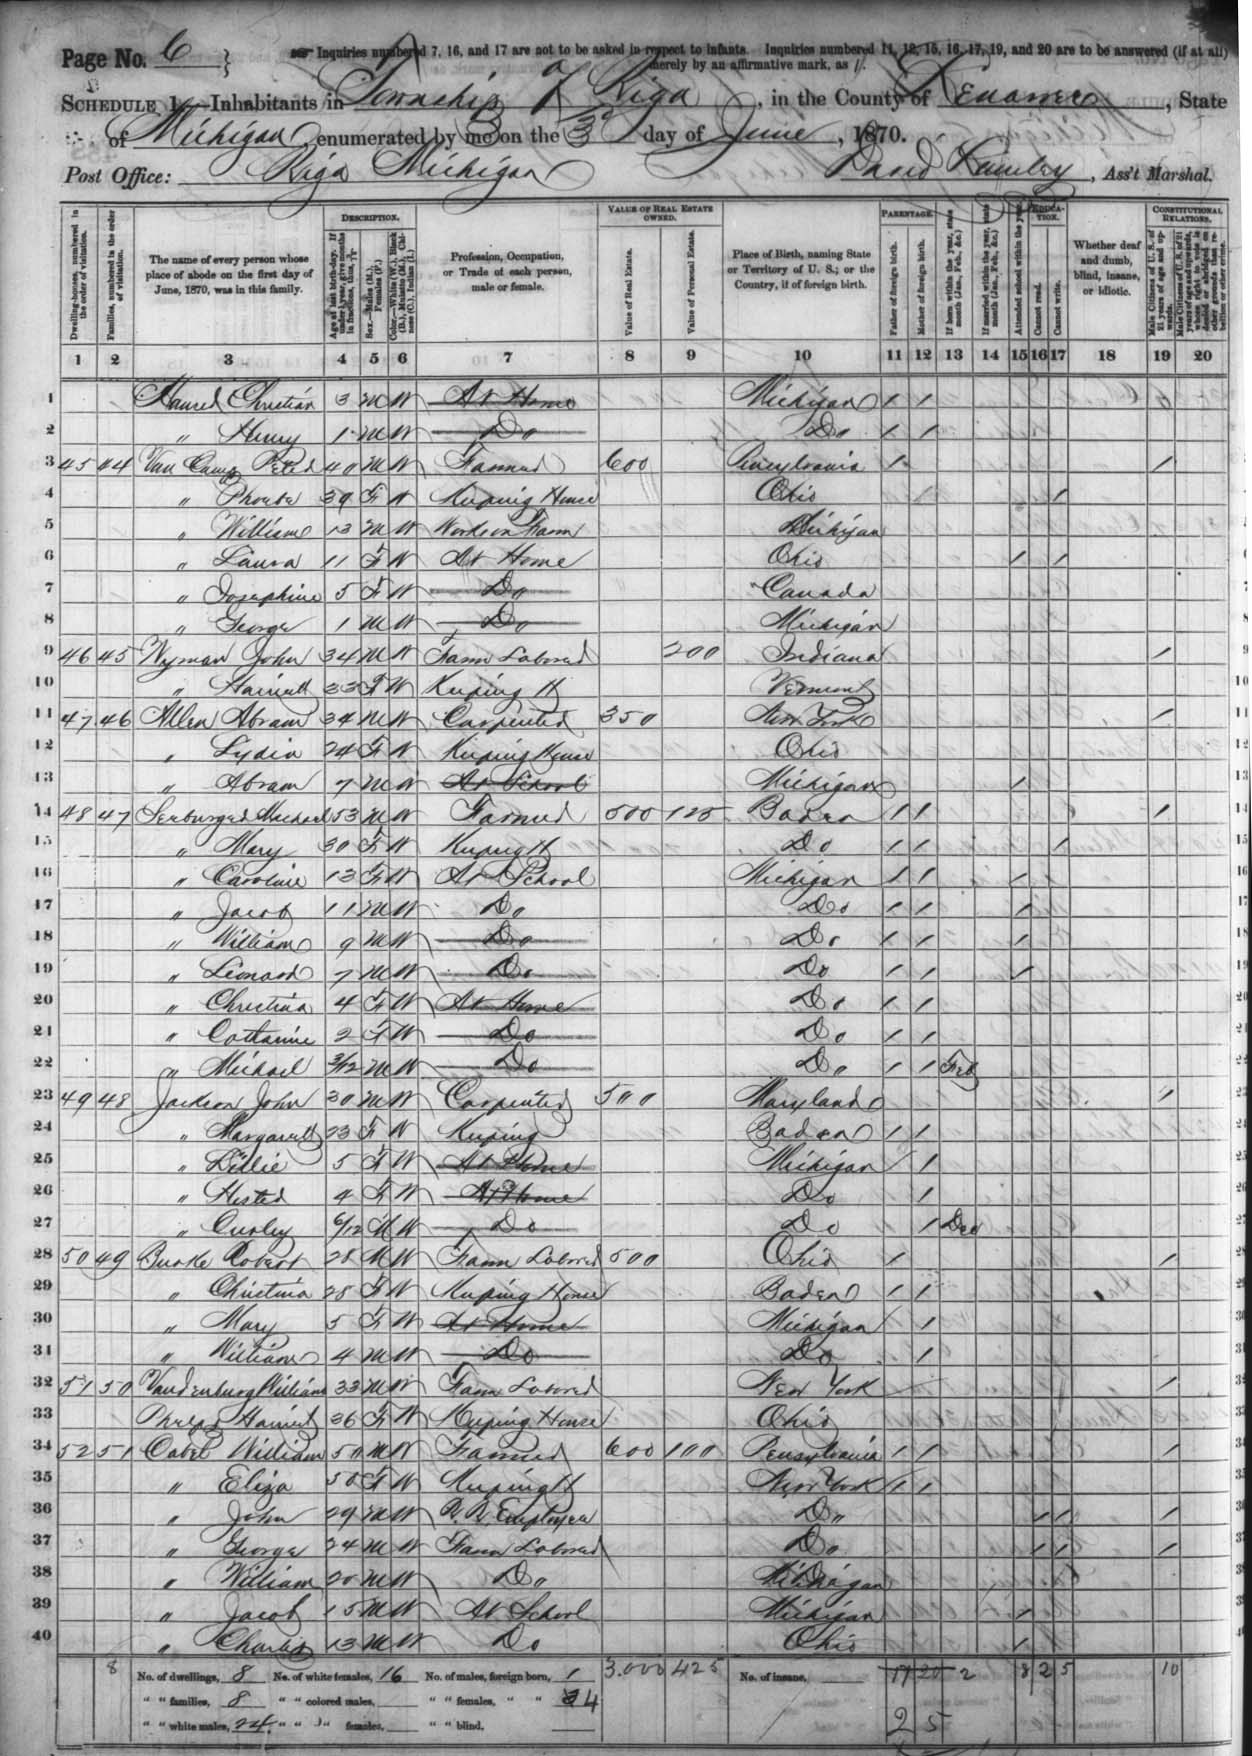 Page No. 6 } Inquiries numbered 7, 16, and 17 are not to be asked in respect to infants. Inquiries numbered 11, 12, 15, 16, 17, 19, and 20 are to be answered (if at all)
merely by an affirmative mark, as /.
SCHEDULE 1.—Inhabitants in Township of Riga, in the County of Lenawee, State
of Michigan, enumerated by me on the 3d day of June, 1870.
Post Office: Riga Michigan David , Ass't Marshal.
Dwelling-houses, numbered in the order of visitation.
Families, numbered in the order of visitation.
The name of every person whose place of abode on the first day of June, 1870, was in this family.
DESCRIPTION.
Age at last birth-day. If under 1 year, give months in fractions, thus, 3/12
Sex.—Males (M.), Females (F.)
Color.—White (W.), Black (B.), Mulatto (M.), Chinese (C.), Indian (I.)
Profession, Occupation, or Trade of each person, male or female.
VALUE OF REAL ESTATE OWNED.
Value of Real Estate.
Value of Personal Estate.
Place of Birth, naming State or Territory of U. S.; or the Country, if of foreign birth.
PARENTAGE.
Father of foreign birth.
Mother of foreign birth.
If born within the year, state month (Jan., Feb., &c.)
If married within the year, state month (Jan., Feb., &c.)
EDUCATION.
Attended school within the year.
Cannot read.
Cannot write.
Whether deaf and dumb, blind, insane, or idiotic.
CONSTITUTIONAL RELATIONS.
Male Citizens of U. S. of 21 years of age and upwards.
Male Citizens of U. S. of 21 years of age and upwards, whose right to vote is denied or abridged on other grounds than rebellion or other crime.
1 2 3 4 5 6 7 8 9 10 11 12 13 14 15 16 17 18 19 20
1 Christian 3 M W At Home Michigan / /
2 " Henry 1 M W Do Do / /
3 45 44 Van Camp Peter 40 M W Farmer 600 Pennsylvania / /
4 " Phoebe 39 F W Keeping House Ohio /
5 " William 13 M W Works on Farm Michigan
6 " Laura 11 F W At Home Ohio / /
7 " Josephine 5 F W Do Canada
8 " George 1 M W Do Michigan
9 46 45 Wyman John 34 M W Farm Laborer 200 Indiana /
10 " Harriett 33 F W Keeping H Vermont
11 47 46 Allen Abram 34 M W Carpenter 350 New York /
12 " Lydia 24 F W Keeping House Ohio
13 " Abram 7 M W At School Michigan /
14 48 47 Michael 53 M W Farmer 500 125 Baden / / /
15 " Mary 30 F W Keeping H Do / / /
16 " Caroline 13 F W At School Michigan / / /
17 " Jacob 11 M W Do Do / / /
18 " William 9 M W Do Do / / /
19 " Leonard 7 M W Do Do / / /
20 " Christina 4 F W At Home Do / /
21 " Catharine 2 F W Do Do / /
22 " Michael 3/12 M W Do Do / / Feb
23 49 48 Jackson John 30 M W Carpenter 500 Maryland /
24 " Margarett 23 F W Keeping Baden / /
25 " Lillie 5 F W At Home Michigan /
26 " Hester 4 F W At Home Do /
27 " Curley 6/12 M W Do Do / Dec
28 50 49 Burke Robert 28 M W Farm Laborer 500 Ohio / /
29 " Christina 28 F W Keeping House Baden / /
30 " Mary 5 F W At Home Michigan /
31 " William 4 M W Do Do /
32 51 50 Vandenburg William 33 M W Farm Laborer New York /
33 Phelps Harriet 36 F W Keeping House Ohio
34 52 51 Cabel William 50 M W Farmer 600 100 Pensylvania / / /
35 " Eliza 50 F W Keeping H New York / /
36 " John 29 M W R. R. Employee Do / / /
37 " George 24 M W Farm Laborer Do / / /
38 " William 20 M W Do Michigan
39 " Jacob 15 M W At School Michigan /
40 " Charles 13 M W Do Ohio /
8 No. of dwellings, 8 No. of white females, 16 No. of males, foreign born, 1 3.000 425 No. of insane, 17 20 2 8 2 5 10
" " families, 8 " " colored males, " " females, " " 4
" " white males, 24 " " " females, " " blind, 2 5